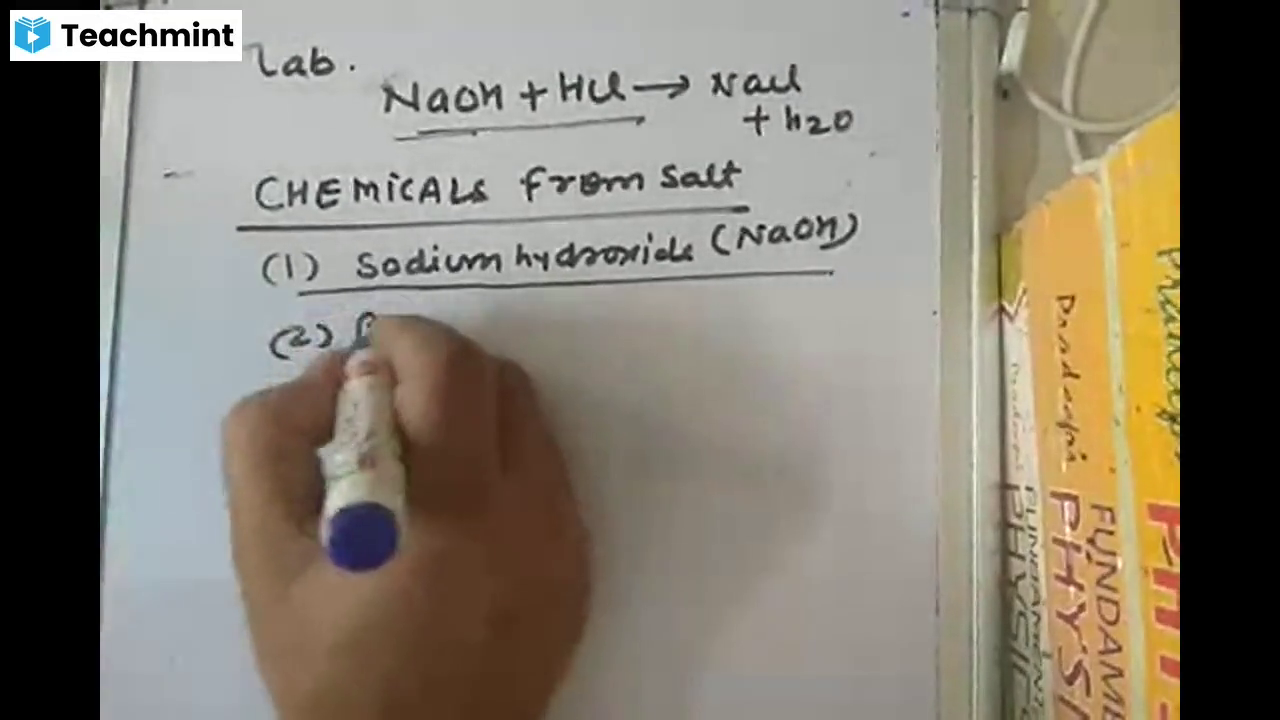 Teachmint
Lab.
NaOH + HCl → NaCl
+ H2O
CHEMICALS from salt
(1) Sodium hydroxide (NaOH)
(2)
Pradeep's
FUNDAMENT
PHYSIC
Pradeep's
FUNDAME
PHYSI